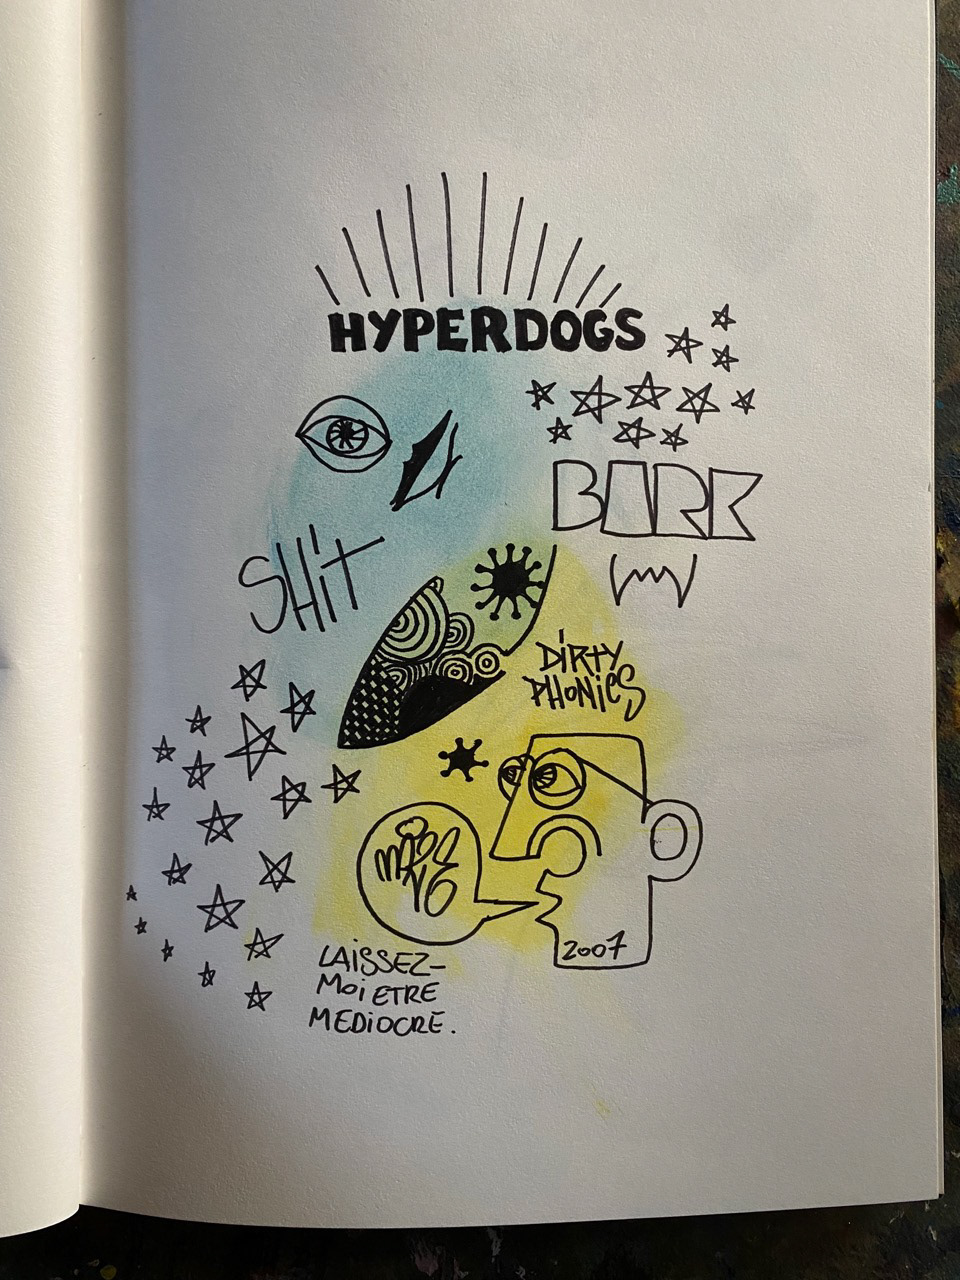 HYPERDOGS
BARK
SHiT
DiRTY
PHONiCS
2007
LAiSSEZ-
MOi ETRE
MEDiOCRE.